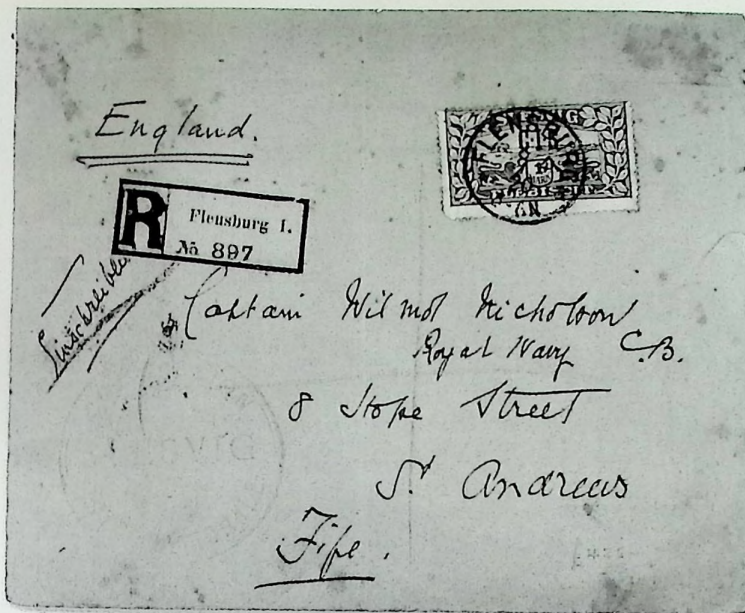 England.
FLENSBURG
R Flensburg 1.
No 897
Einschreiben
Captain Wilmot Nicholson
Royal Navy C.B.
8 Hope Street
St Andrews
Fife.